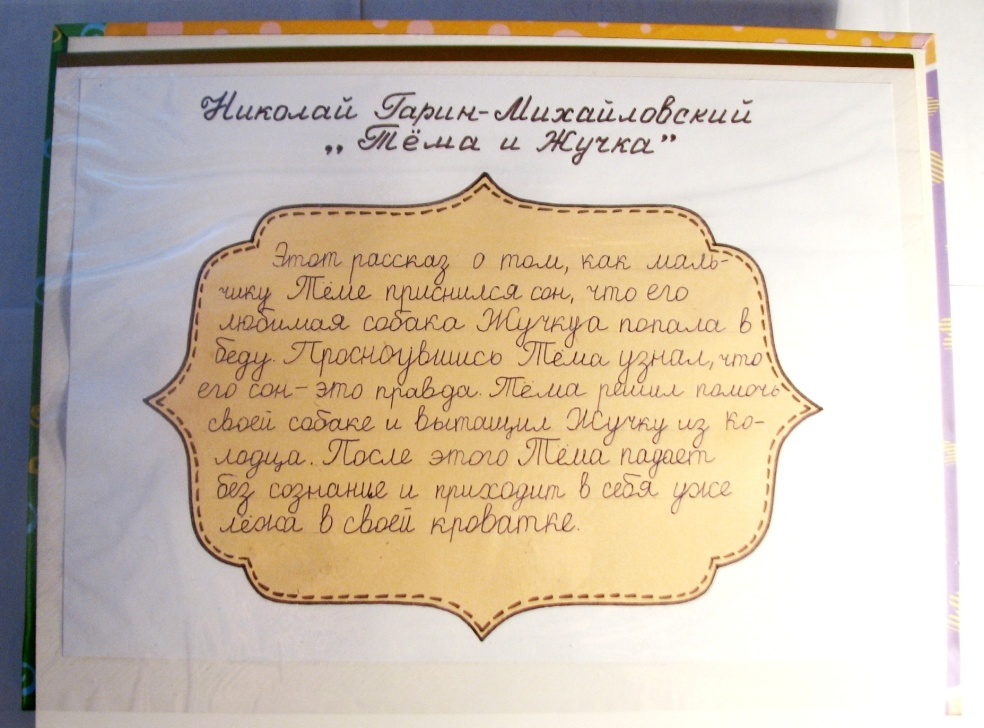 Николай Гарин-Михайловский
„Тёма и Жучка”
Этот рассказ о том, как маль-
чику Тёме приснился сон, что его
любимая собака Жучкуа попала в
беду. Просноувшись Тёма узнал, что
его сон - это правда. Тёма решил помочь
своей собаке и вытащил Жучку из ко-
лодца. После этого Тёма падает
без сознание и приходит в себя уже
лёжа в своей кроватке.